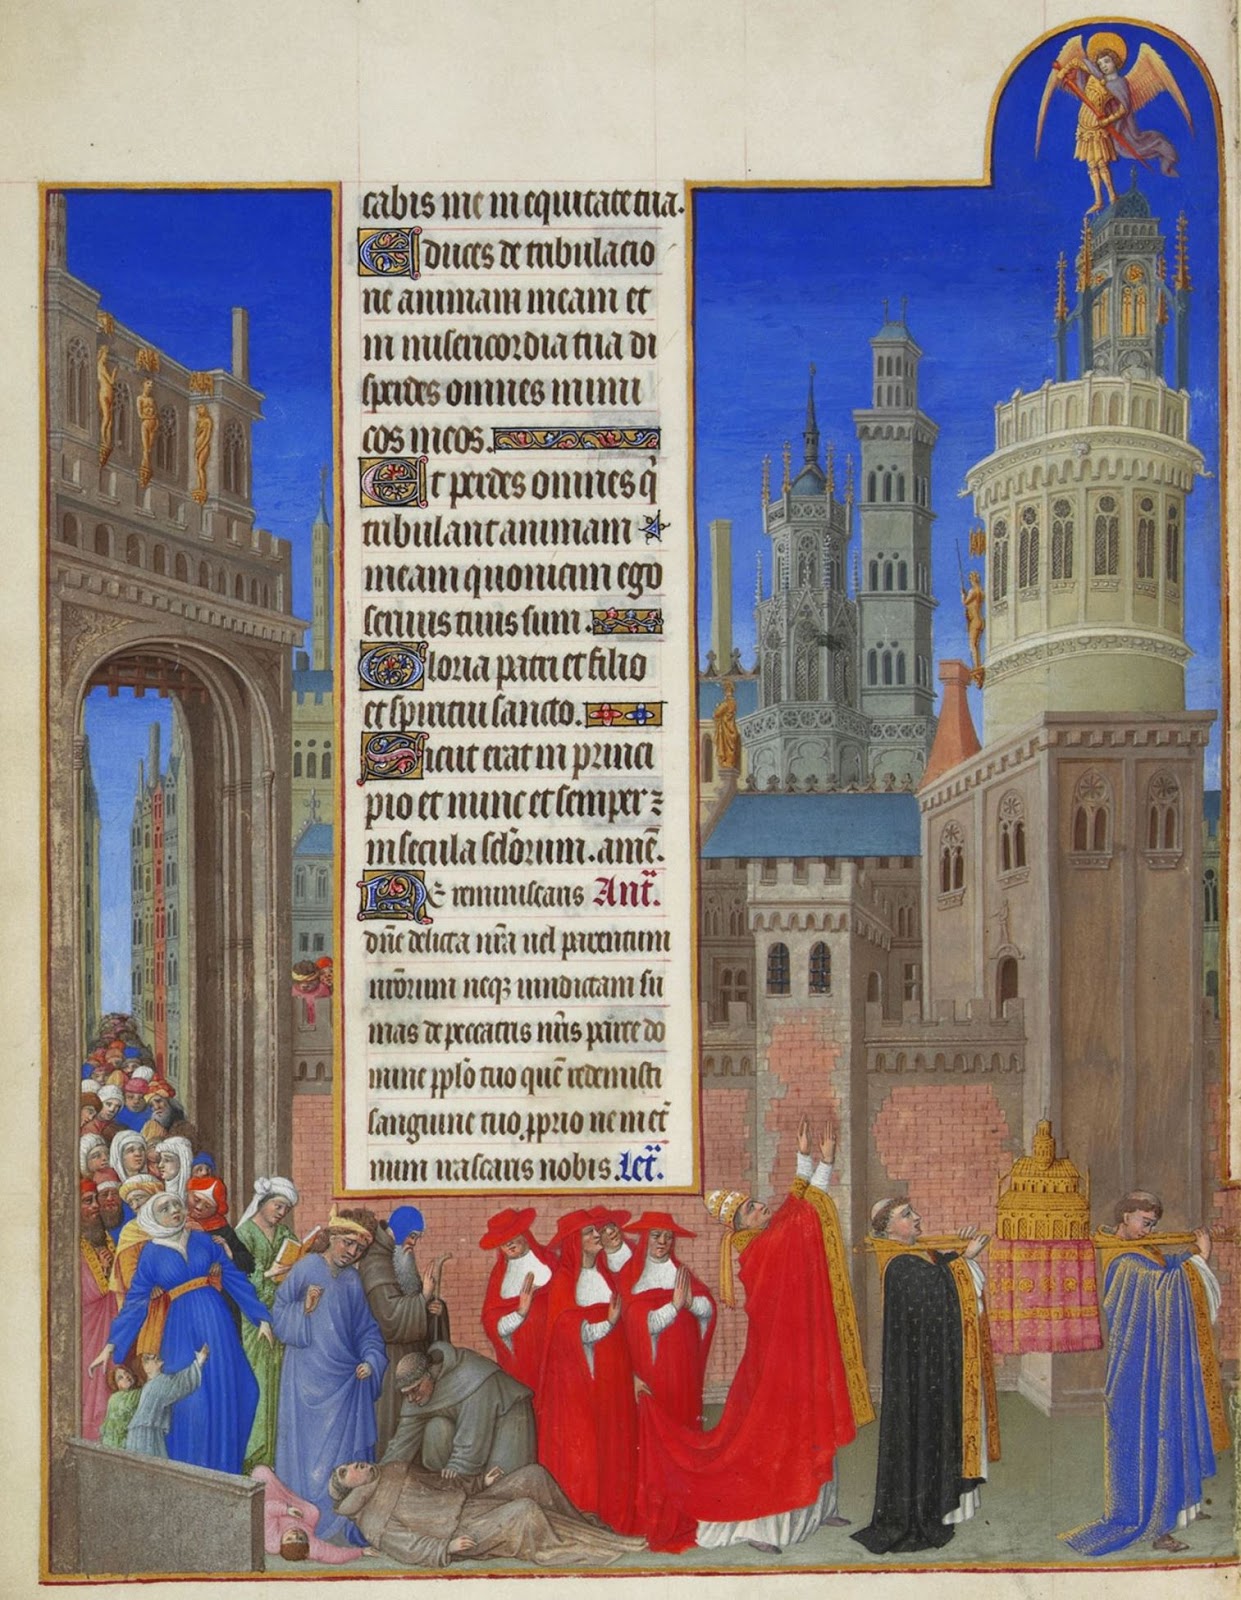 cabis me in equitate tua.
Educes de tribulacio
ne animam meam et
in misericordia tua di
sperdes omnes inimi
cos meos.
Et perdes omnes q̄
tribulant animam
meam quoniam ego
seruus tuus sum.
Gloria patri et filio
et spiritui sancto.
Sicut erat in princi
pio et nunc et semper ⁊
in secula sclōrum. amē.
Ne reminiscaris Ant̄.
dn̄e delicta nr̄a uel parentum
nr̄orum neqꝫ uindictam su
mas de peccatis nr̄is parce do
mine pplō tuo quē redemisti
sanguine tuo ꝓprio ne in et̄
num irascaris nobis. Let̄.